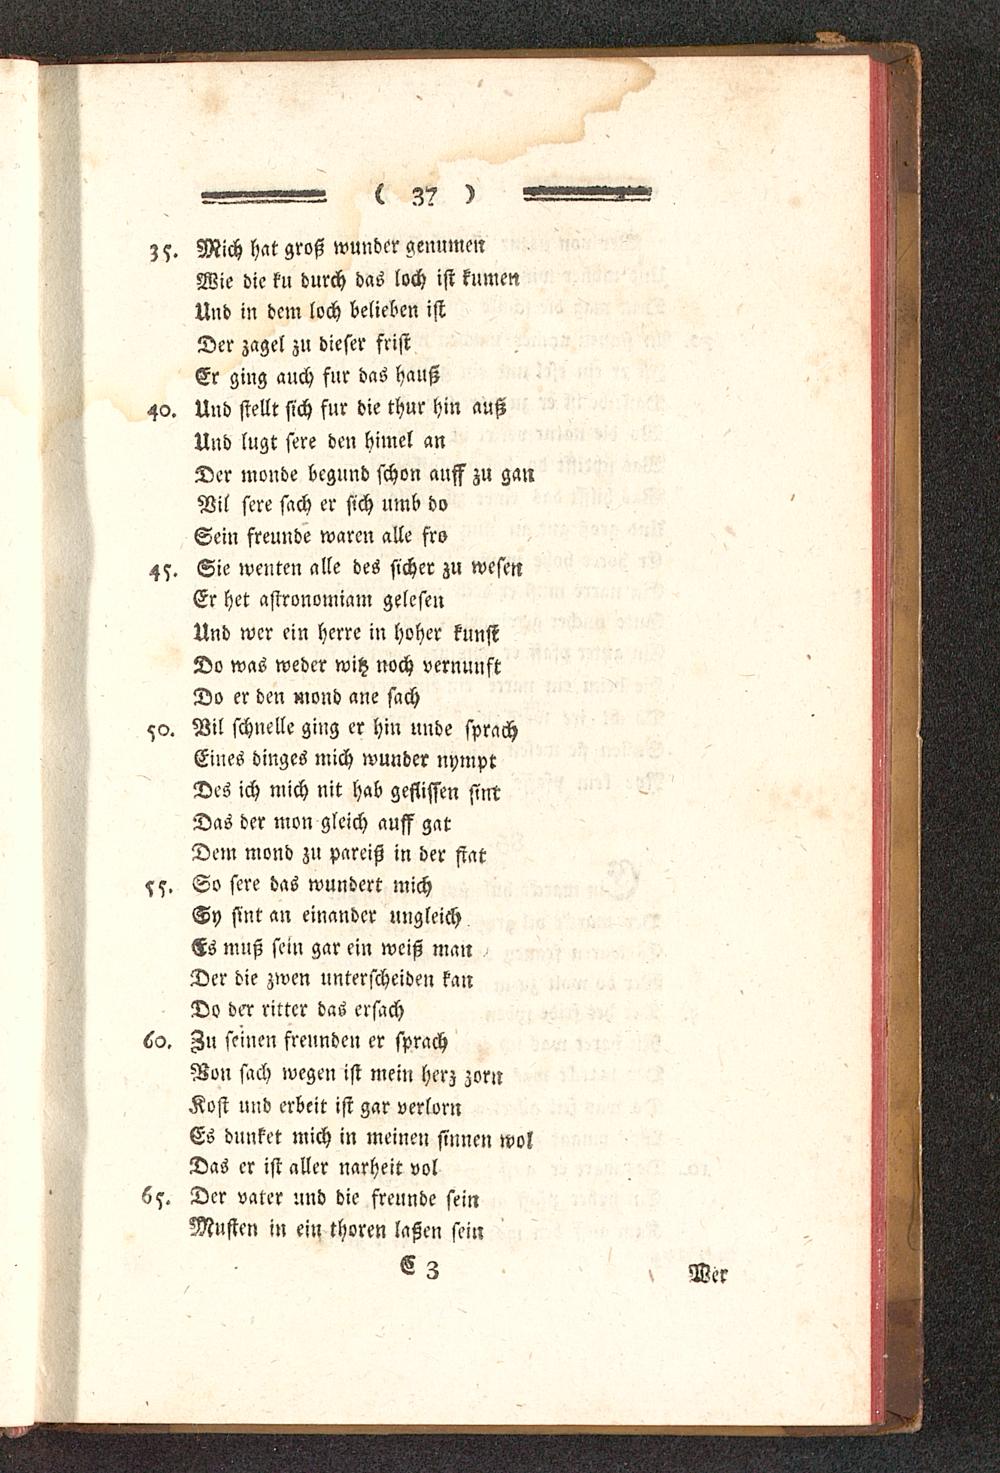 ( 37 )
35. Mich hat groß wunder genumen
Wie die ku durch das loch ist kumen
Und in dem loch belieben ist
Der zagel zu dieser frist
Er ging auch fur das hauß
40. Und stellt sich fur die thur hin auß
Und lugt sere den himel an
Der monde begund schon auff zu gan
Vil sere sach er sich umb do
Sein freunde waren alle fro
45. Sie wenten alle des sicher zu wesen
Er het astronomiam gelesen
Und wer ein herre in hoher kunst
Do was weder witz noch vernunft
Do er den mond ane sach
50. Vil schnelle ging er hin unde sprach
Eines dinges mich wunder nympt
Des ich mich nit hab geflissen sint
Das der mon gleich auff gat
Dem mond zu pareiß in der stat
55. So sere das wundert mich
Sy sint an einander ungleich
Es muß sein gar ein weiß man
Der die zwen unterscheiden kan
Do der ritter das ersach
60. Zu seinen freunden er sprach
Von sach wegen ist mein herz zorn
Kost und erbeit ist gar verlorn
Es dunket mich in meinen sinnen wol
Das er ist aller narheit vol
65. Der vater und die freunde sein
Musten in ein thoren laßen sein
C 3 Wer